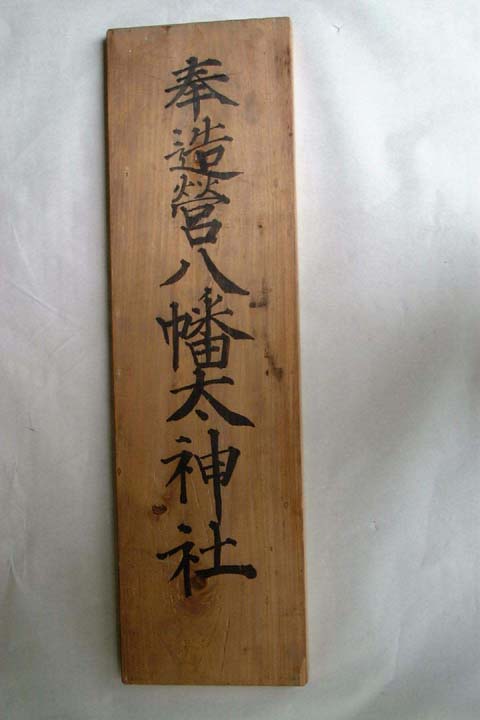 奉造營八幡太神社